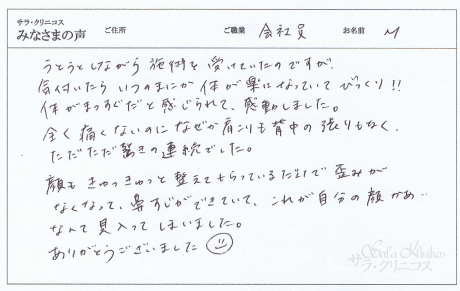 サラ・クリニコス
みなさまの声 ご住所 ご職業 会社員 お名前 M
うとうとしながら施術を受けていたのですが、
気付いたらいつのまにか体が楽になっていてびっくり!!
体がまっすぐだと感じられて、感動しました。
全く痛くないのになぜか肩こりも背中の張りもなく、
ただただ驚きの連続でした。
顔もきゅっきゅっと整えてもらっているだけで歪みが
なくなって、鼻すじができていて、これが自分の顔かぁ…
なんて見入ってしまいました。
ありがとうございました
サラ・クリニコス